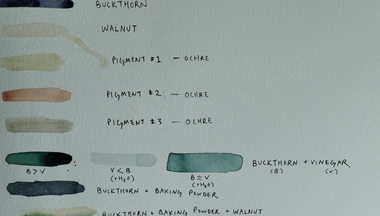 BUCKTHORN
WALNUT
PIGMENT #1 – OCHRE
PIGMENT #2 – OCHRE
PIGMENT #3 – OCHRE
B > V V < B B ≈ V BUCKTHORN + VINEGAR
(+H₂O) (+H₂O) (B) (V)
BUCKTHORN + BAKING POWDER
BUCKTHORN + BAKING POWDER + WALNUT